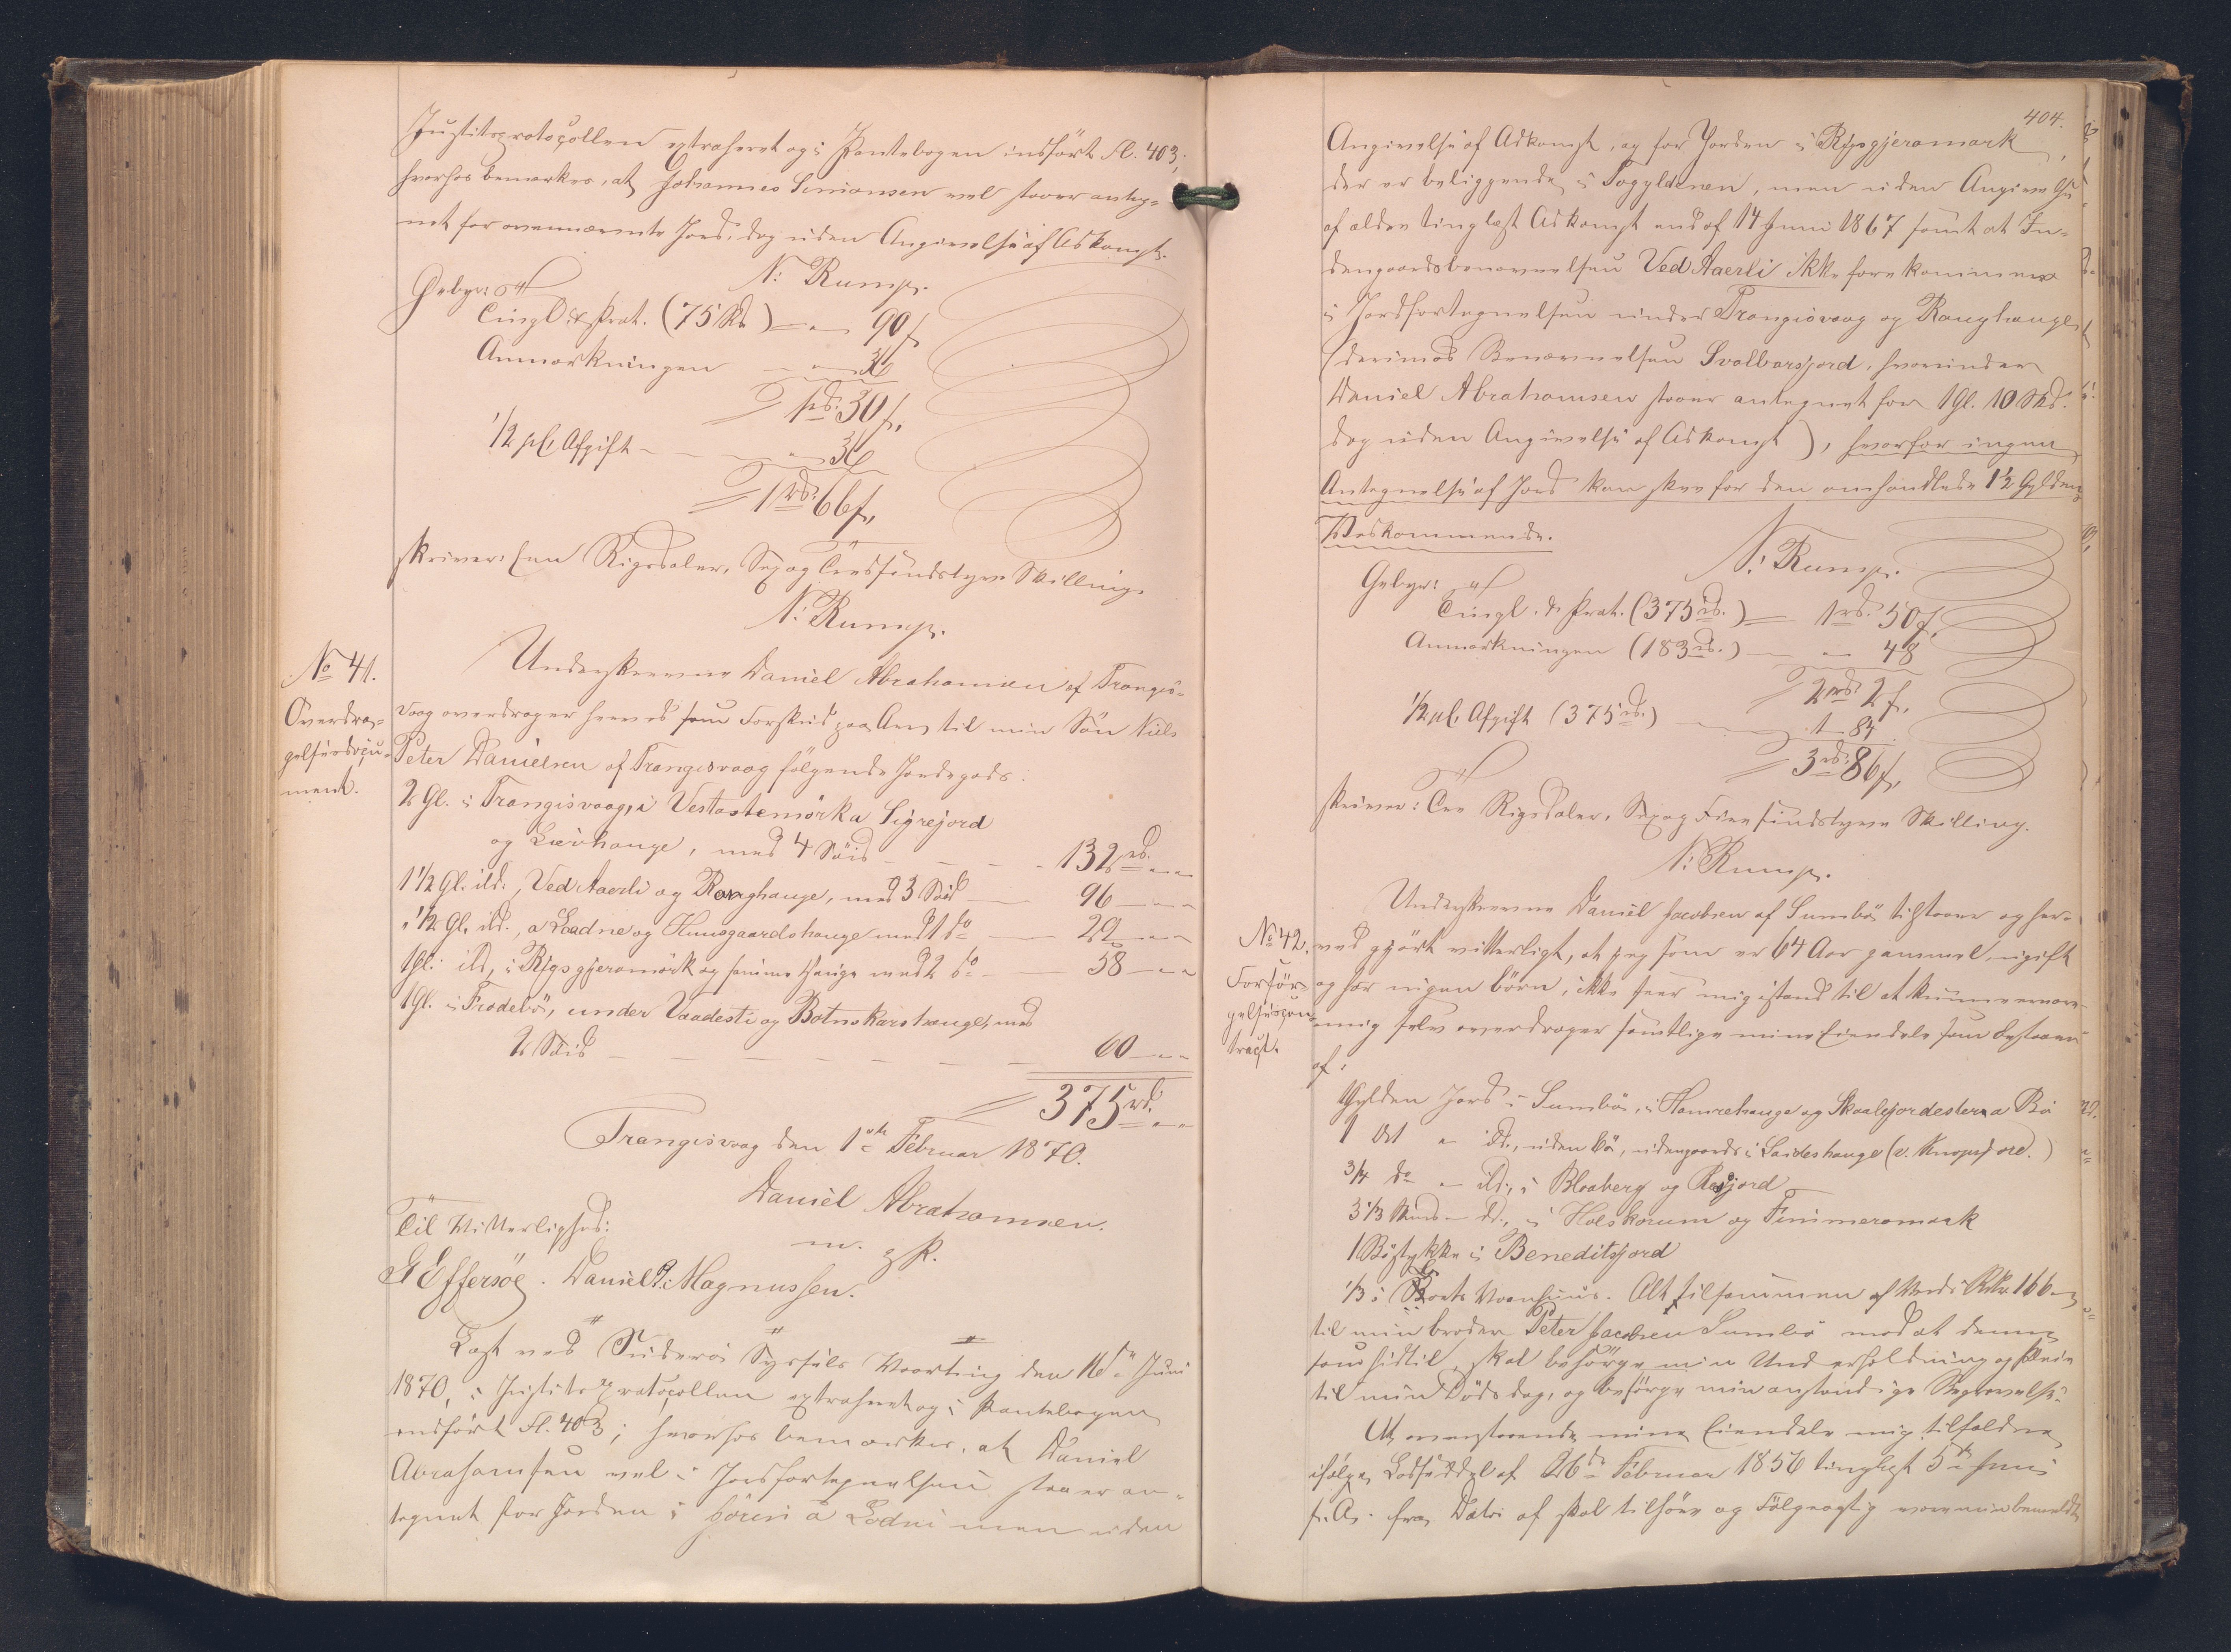 Justitsprotocollen extraheret og i Pantebogen indført Fl. 403,
hvorhos bemærkes, at Johannes Simonsen vel staaer anteg-
net for ovennævnte Jord, dog uden Angivelse af Adkomst.
N: Rump.
Gebyr:
Tingl. & Prot. (75 Rd) — " 90 f
Anmærkningen — " 36
1 rd: 30 f,
1/2 pCt Afgift — — " 36
1 rd: 66 f,
skriver: Een Rigsdaler, Sex og Tredsindstyve Skilling.
N: Rump.
No 41.
Overdra-
gelsesdocu-
ment.
Underskrevne Daniel Abrahamsen af Trangis-
vaag overdrager herved som Forskud paa Arv til min Sön Niels
Peter Danielsen af Trangisvaag fölgende Jordegods:
2 Gl. i Trangisvaag, i Vestastemörka Sigrejord
og Lievhauge, med 4 Söid — — — 132 rd. " "
1 1/2 Gl. ibd., Ved Aaerli og Roughauge, med 3 Söid — 96 — " "
" 1/2 Gl. ibd., a Loadne og Kunsgaardshauge med 1 do — 29 — " "
1 Gl. ibd, i Rygsgjeramörk og samme Hauge med 2 do — 58 — " "
1 Gl. i Frodebö, under Vaadesti og Botnskarshauge, med
2 Söid — — — — — 60 — " "
375 rd. " "
Trangisvaag den 1ste Februar 1870.
Daniel Abrahamsen.
m. f. P.
Til Vitterlighed:
G Effersöe. Daniel P. Magnussen.
Læst ved Suderö Syssels Vaarting den 16de Juni
1870, i Justitsprotocollen extraheret og i Pantebogen
indfört Fl. 403; hvorhos bemærkes, at Daniel
Abrahamsen vel i Jordfortegnelsen staaer an-
tegnet for Jorden i Hören a Lodni men uden
404.
Angivelse af Adkomst, og for Jorden i Rygsgjeramörk,
der er beliggende i Sogyldenen, men uden Angivelse
af ældre tinglæst Adkomst end af 14 Juni 1867 samt at In-
dengaardsbenævnelsen Ved Aaerli ikke forekommer
i Jordfortegnelsen under Trangisvaag og Roughauge
(derimod Benævnelsen Svalbarsjord, hvorunder
Daniel Abrahamsen staaer antegnet for 1 Gl. 10 Skd.
dog uden Angivelse af Adkomst), hvorfor ingen
Antegnelse af Jord kan skee for den omhandlede 1 1/2 Gylden
Vedkommende.
N: Rump.
Gebyr:
Tingl. & Prot. (375 rd.) — 1 rd. 50 f,
Anmærkningen (183 rd.) — " 48
2 rd: 2 f,
1/2 pCt Afgift (375 rd.) — 1 — 84
3 rd: 86 f,
skriver: Tre Rigsdaler, Sex og Fiirsindstyve Skilling.
N: Rump.
No 42.
Forsör-
gelsescon-
tract.
Underskrevne Daniel Jacobsen af Sumbö tilstaaer og her-
ved gjört vitterligt, at jeg som er 64 Aar gammel, ugift
og har ingen börn, ikke seer mig istand til at kunne ernære
mig selv overdrager samtlige mine Eiendele som bestaaer
af:
1 Gylden Jord i Sumbö, i Hamrehauge og Skaalejordestera Bö
1 Do " ibd., uden bö, udengaards i Laideshauge (v. Knopsjord.)
3/4 do " ibd., i Bloaberg og Rasjord
3 1/3 Skind — ibd., i Holskorum og Fimmeramark
1 Böstykke i Beneditsjord
1/3 i Voanhuus. Alt tilsammen af Værdi Rdlr. 166
til min broder Peter Jacobsen Sumbö mod at denne
som hidtil, skal besörge min Underholdning og Pleie
til min Dödsdag, og besörge min anstændige Begravelse.
At ovenstaaende mine Eiendele mig tilfaldne
ifölge Lodseddel af 26de Februar 1856 tinglæst 5te Juni
s. A. fra Dato af skal tilhöre og Fölgeagtig være min bemeldte